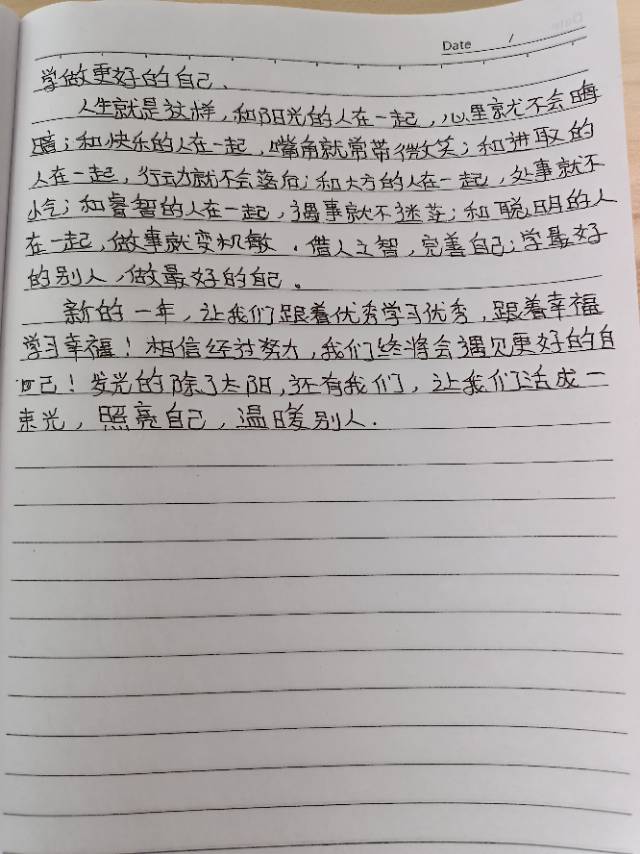 Date /
学做更好的自己、
人生就是这样,和阳光的人在一起,心里就不会晦
暗;和快乐的人在一起,嘴角就常带微笑;和进取的
人在一起,行动就不会落后;和大方的人在一起,处事就不
小气;和睿智的人在一起,遇事就不迷茫;和聪明的人
在一起,做事就变机敏.借人之智,完善自己;学最好
的别人,做最好的自己。
新的一年,让我们跟着优秀学习优秀,跟着幸福
学习幸福!相信经过努力,我们终将会遇见更好的自
己!发光的除了太阳,还有我们,让我们活成一
束光,照亮自己,温暖别人.